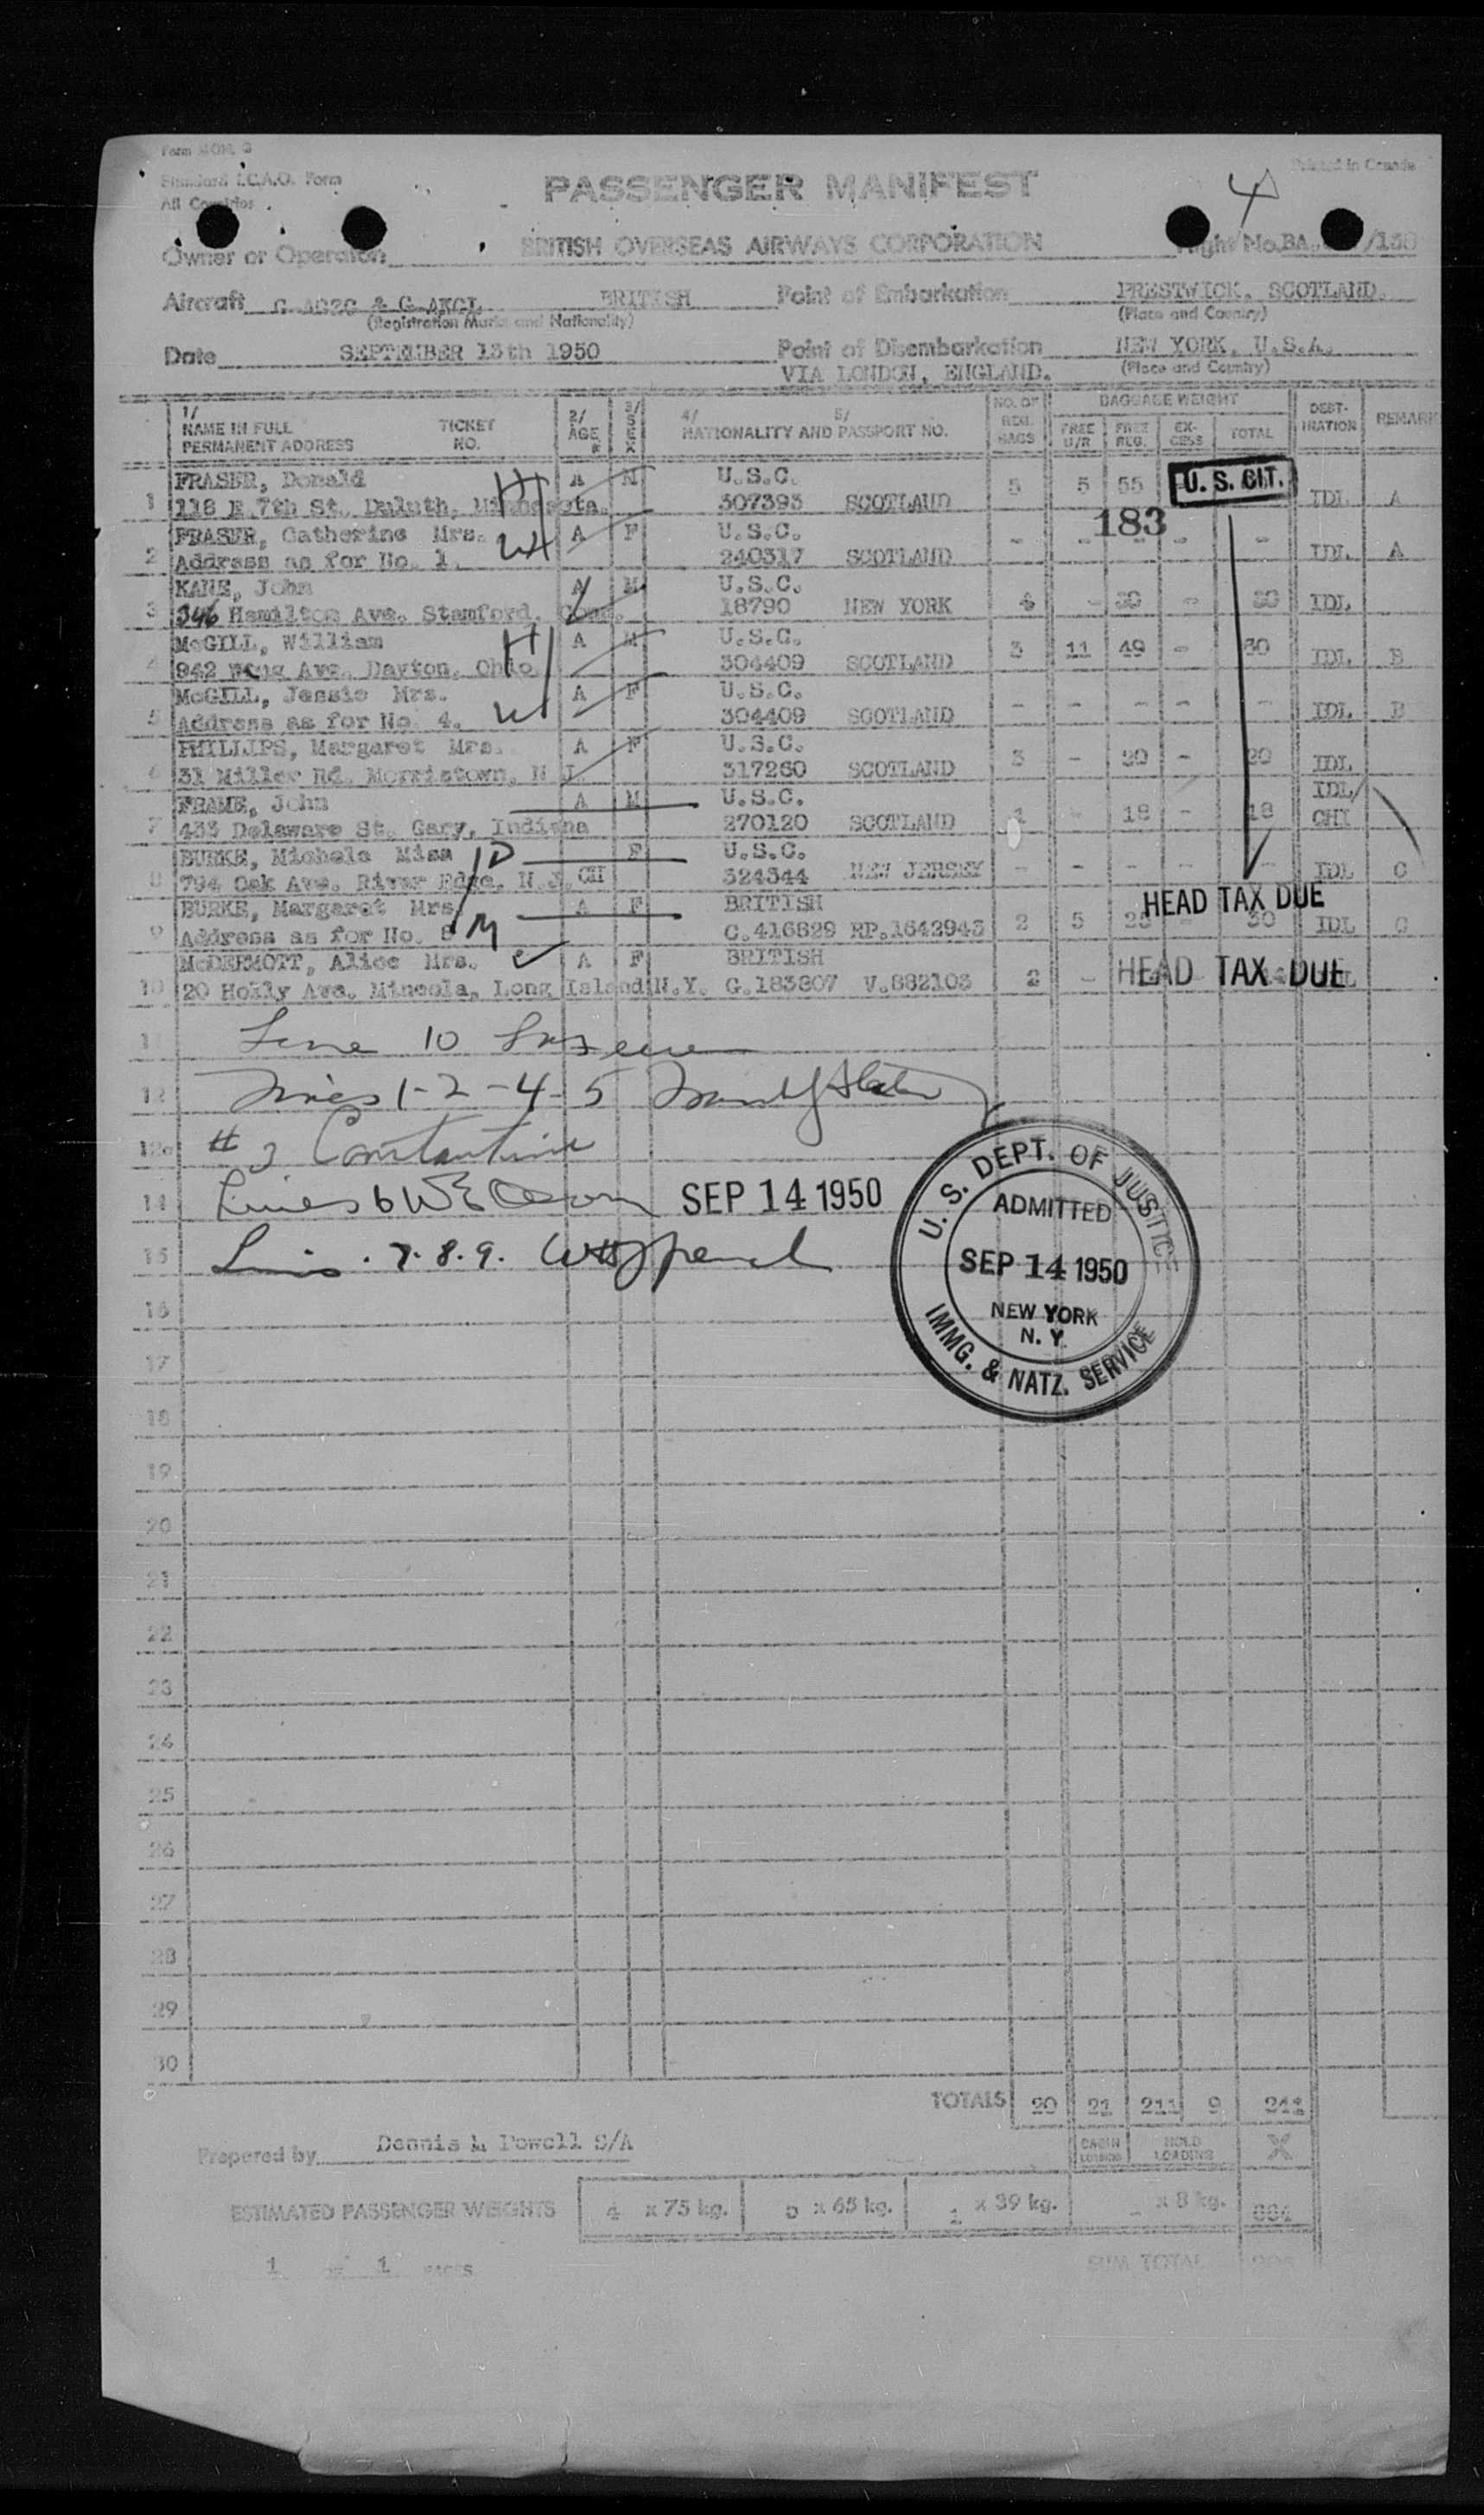 Standard I.C.A.O. Form
Printed in Canada
All Countries
PASSENGER MANIFEST
4
Owner or Operator BRITISH OVERSEAS AIRWAYS CORPORATION Flight No. BA.
Aircraft BRITISH Point of Embarkation PRESTWICK, SCOTLAND.
(Registration Marks and Nationality) (Place and Country)
Date SEPTEMBER 13th 1950 Point of Disembarkation NEW YORK, U.S.A.
VIA LONDON, ENGLAND. (Place and Country)
1/ NAME IN FULL PERMANENT ADDRESS TICKET NO. 2/ AGE 3/ SEX 4/ 5/ NATIONALITY AND PASSPORT NO. NO. OF REG. BAGS BAGGAGE WEIGHT FREE U/R FREE REG. EX-CESS TOTAL DEST-INATION REMARK
FRASER, Donald H A M U.S.C. U.S. CIT.
1 118 E 7th St. Duluth, Minnesota. 307393 SCOTLAND 5 5 55 IDL A
FRASER, Catherine Mrs. W A F U.S.C. 183
2 Address as for No. 1. 240317 SCOTLAND - - - - - IDL A
KANE, John A M U.S.C.
3 346 Hamilton Ave. Stamford, Conn. 18790 NEW YORK 4 - 30 - 30 IDL
McGILL, William H A M U.S.C.
4 842 Ave. Dayton, Ohio. 304409 SCOTLAND 3 11 49 - 60 IDL B
McGILL, Jessie Mrs. W A F U.S.C.
5 Address as for No. 4. 304409 SCOTLAND - - - - - IDL B
PHILLIPS, Margaret Mrs. A F U.S.C.
6 31 Miller Rd. Morristown, N J. 317260 SCOTLAND 3 - 20 - 20 IDL
FRAME, John A M U.S.C. IDL/
7 433 Delaware St. Gary, Indiana 270120 SCOTLAND 1 - 18 - 18 CHI
BURKE, Michele Miss D F U.S.C.
8 794 Oak Ave. River Edge, N.J. CH 324344 NEW JERSEY - - - - - IDL C
BURKE, Margaret Mrs. A F BRITISH HEAD TAX DUE
9 Address as for No. 8 M C.416829 RP.1642943 2 5 25 - 30 IDL C
McDERMOTT, Alice Mrs. A F BRITISH HEAD TAX DUE
10 20 Holly Ave. Mineola, Long Island N.Y. G.183807 V.882103 2 -
11 Line 10
12 Lines 1-2-4-5
# 3 Constantine
14 Lines 6 SEP 14 1950
15 Lines . 7. 8. 9.
U. S. DEPT. OF JUSTICE
ADMITTED
SEP 14 1950
NEW YORK
N. Y.
IMMG. & NATZ. SERVICE
16
17
18
19
20
21
22
23
24
25
26
27
28
29
30
TOTALS 20 21 211 9 241
Prepared by Dennis L Powell S/A CABIN LOADING HOLD LOADING X
ESTIMATED PASSENGER WEIGHTS 4 x 75 kg. 5 x 65 kg. 1 x 39 kg. - x 8 kg.
1 of 1 PAGES SUM TOTAL